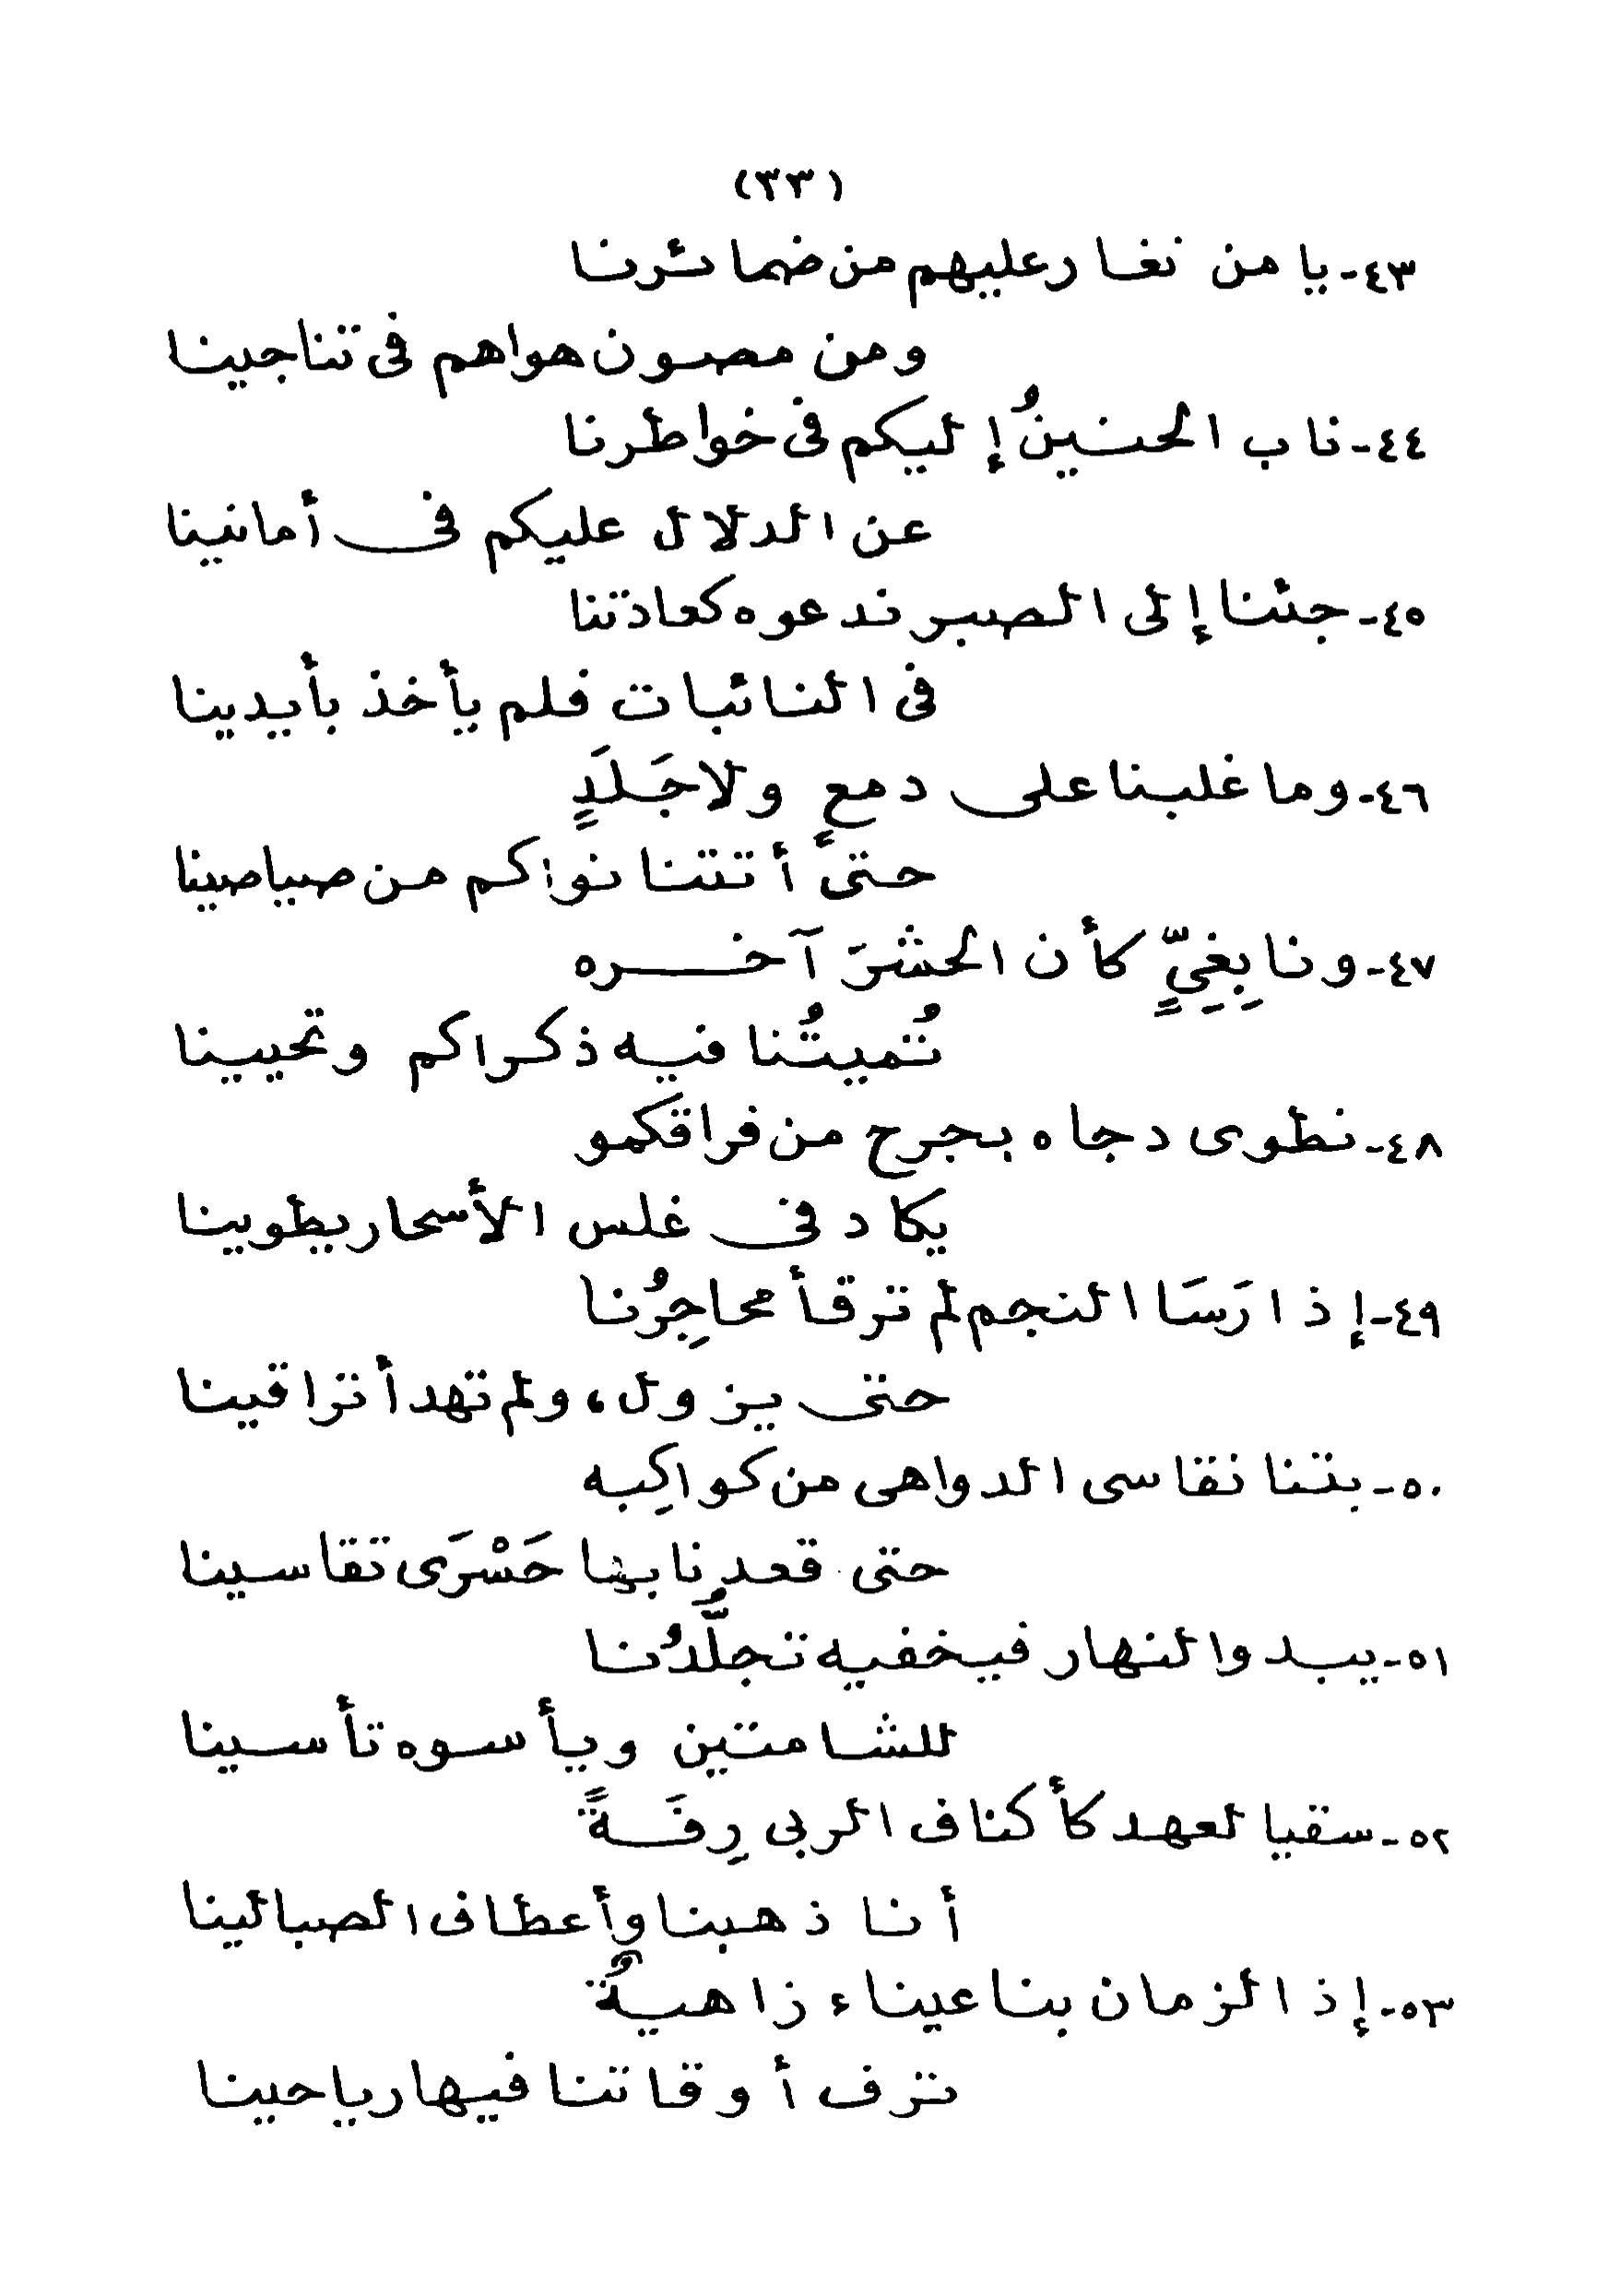 (٣٣)
٤٣-يا من نغار عليهم من ضمائرنا
ومن مصون هواهم فى تناجينا
٤٤-ناب الحنينُ إليكم فى خواطرنا
عن الدلال عليكم فى أمانينا
٤٥-جئنا إلى الصبر ندعوه كعادتنا
فى النائبات فلم يأخذ بأيدينا
٤٦-وما غلبنا على دمعٍ ولا جَلَدٍ
حتىَّ أتتنا نواكم من صياصينا
٤٧-ونابِغِيٍّ كأن الحشرَ آخره
تُميتُنا فيه ذكراكم وتحيينا
٤٨-نطوى دجاه بجرح من فراقكمو
يكاد فى غلس الأسحار يطوينا
٤٩-إذا رَسَا النجم لم ترقأ محاجِرُنا
حتى يزول، ولم تهدأ تراقينا
٥٠-بتنا نقاسى الدواهى من كواكِبه
حتى قعدنا بها حَسْرَى تقاسينا
٥١-يبدو النهار فيخفيه تجلُّدُنا
للشامتين ويأسوه تأسينا
٥٢-سقيا لعهد كأكناف الربى رِفَةً
أنا ذهبنا وأعطاف الصبا لينا
٥٣-إذ الزمان بنا عيناء زاهيةٌ
ترف أوقاتنا فيها رياحينا